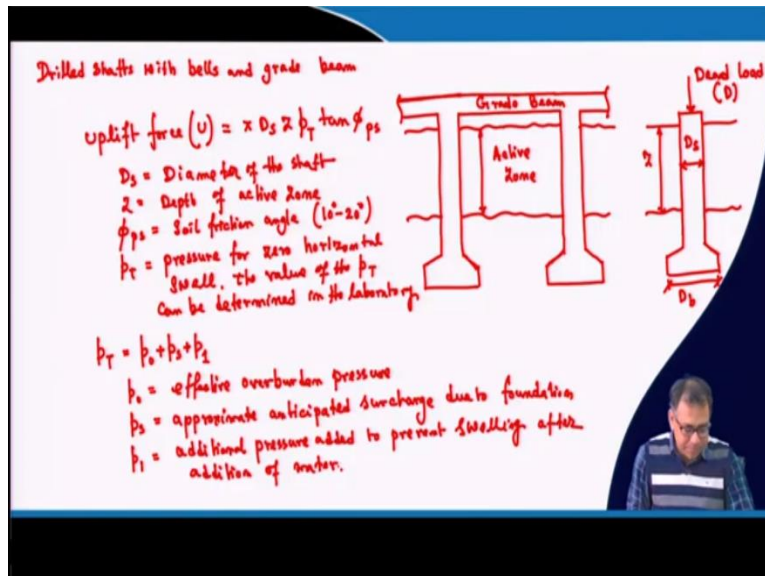 Drilled shafts with bells and grade beam
uplift force (U) = π Ds Z pT tan φps
Ds = Diameter of the shaft
Z = Depth of active zone
φps = Soil friction angle (10°-20°)
pT = pressure for zero horizontal
swell. The value of the pT
can be determined in the laboratory.
pT = p0+ps+p1
p0 = effective overburden pressure
ps = approximate anticipated surcharge due to foundation
p1 = additional pressure added to prevent swelling after
addition of water.
Grade beam
Active
Zone
Dead load
(D)
Z
Ds
Db